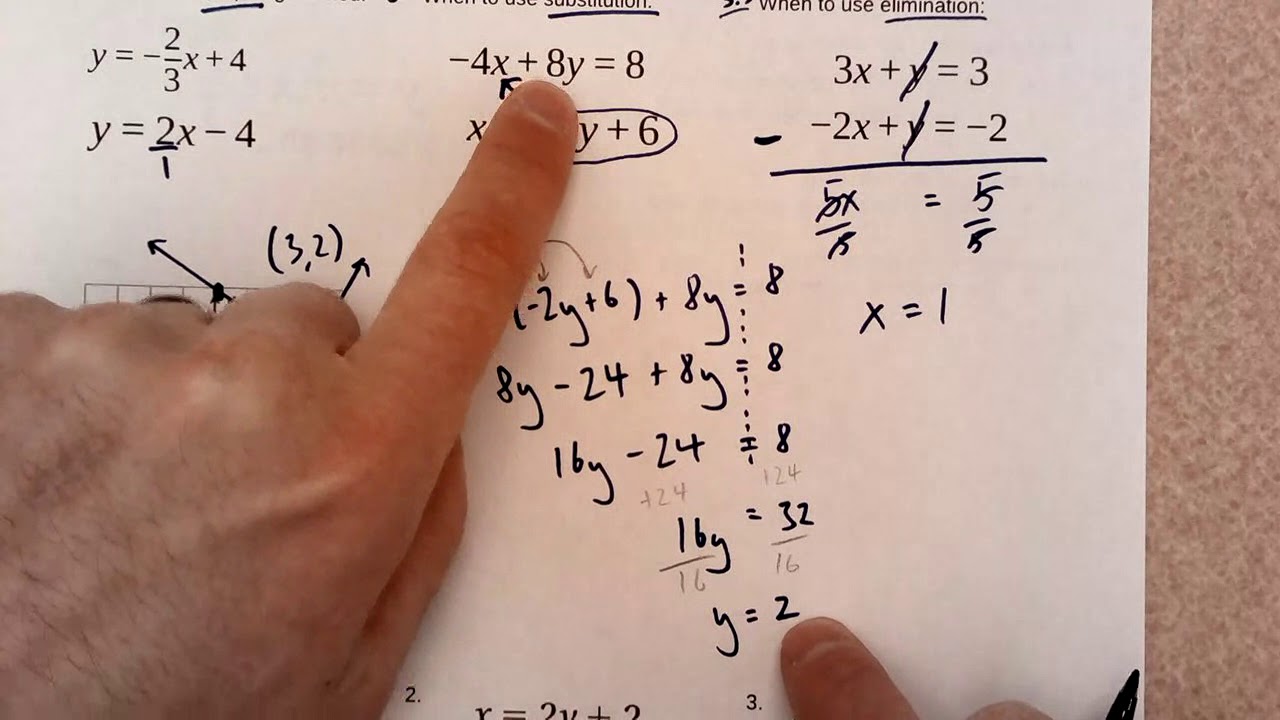 When to use substitution:
When to use elimination:
y = -2/3x + 4
y = 2x - 4
1
(3,2)
-4x + 8y = 8
x y + 6
(-2y+6) + 8y = 8
8y - 24 + 8y = 8
16y - 24 = 8
+24 +24
16y = 32
16 16
y = 2
3x + y = 3
- -2x + y = -2
5x = 5
5 5
x = 1
2.
x = 2y + 2
3.